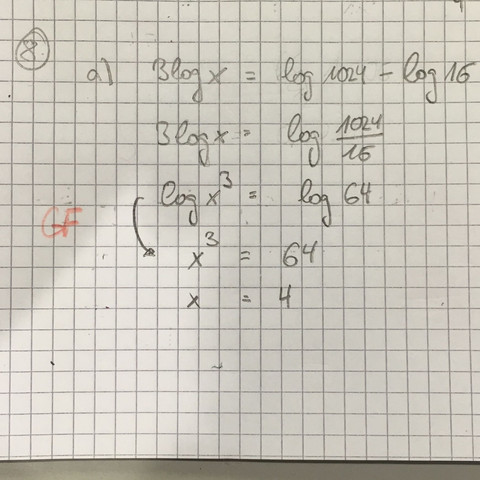 8
a) 3 log x = log 1024 - log 16
3 log x = log 1024/16
log x³ = log 64
GF
x³ = 64
x = 4